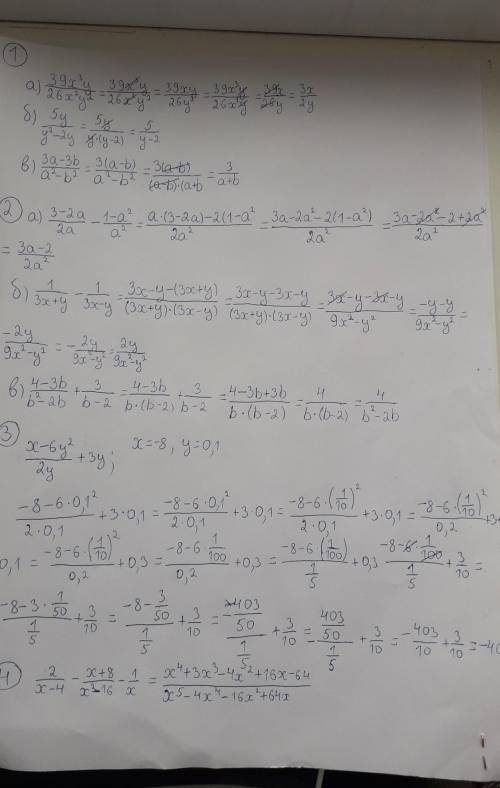 1
а) 39x³y/26x²y² = 39x³y/26x²y² = 39xy/26y² = 39x³y/26x²y = 39x/26y = 3x/2y
б) 5y/y²-2y = 5y/y·(y-2) = 5/y-2
в) 3a-3b/a²-b² = 3(a-b)/a²-b² = 3(a-b)/(a-b)·(a+b = 3/a+b
2 а) 3-2a/2a - 1-a²/a² = a·(3-2a)-2(1-a²/2a² = 3a-2a²-2(1-a²)/2a² = 3a-2a²-2+2a²/2a²
= 3a-2/2a²
б) 1/3x+y - 1/3x-y = 3x-y-(3x+y)/(3x+y)·(3x-y) = 3x-y-3x-y/(3x+y)·(3x-y) = 3x-y-3x-y/9x²-y² = -y-y/9x²-y² =
-2y/9x²-y² = -2y/9x²-y² = 2y/9x²-y²
в) 4-3b/b²-2b + 3/b-2 = 4-3b/b·(b-2) + 3/b-2 = 4-3b+3b/b·(b-2) = 4/b·(b-2) = 4/b²-2b
3
x-6y²/2y + 3y; x=-8, y=0,1
-8-6·0,1²/2·0,1 + 3·0,1 = -8-6·0,1²/2·0,1 + 3·0,1 = -8-6·(1/10)²/2·0,1 + 3·0,1 = -8-6·(1/10)²/0,2 + 3·
0,1 = -8-6·(1/10)²/0,2 + 0,3 = -8-6·1/100/0,2 + 0,3 = -8-6·(1/100)/1/5 + 0,3 -8-6·1/100/1/5 + 3/10 =
-8-3·1/50/1/5 + 3/10 = -8-3/50/1/5 + 3/10 = -403/50/1/5 + 3/10 = -403/50/1/5 + 3/10 = -403/10 + 3/10 = -40
4 2/x-4 - x+8/x²-16 - 1/x = x⁴+3x³-4x²+16x-64/x⁵-4x⁴-16x²+64x